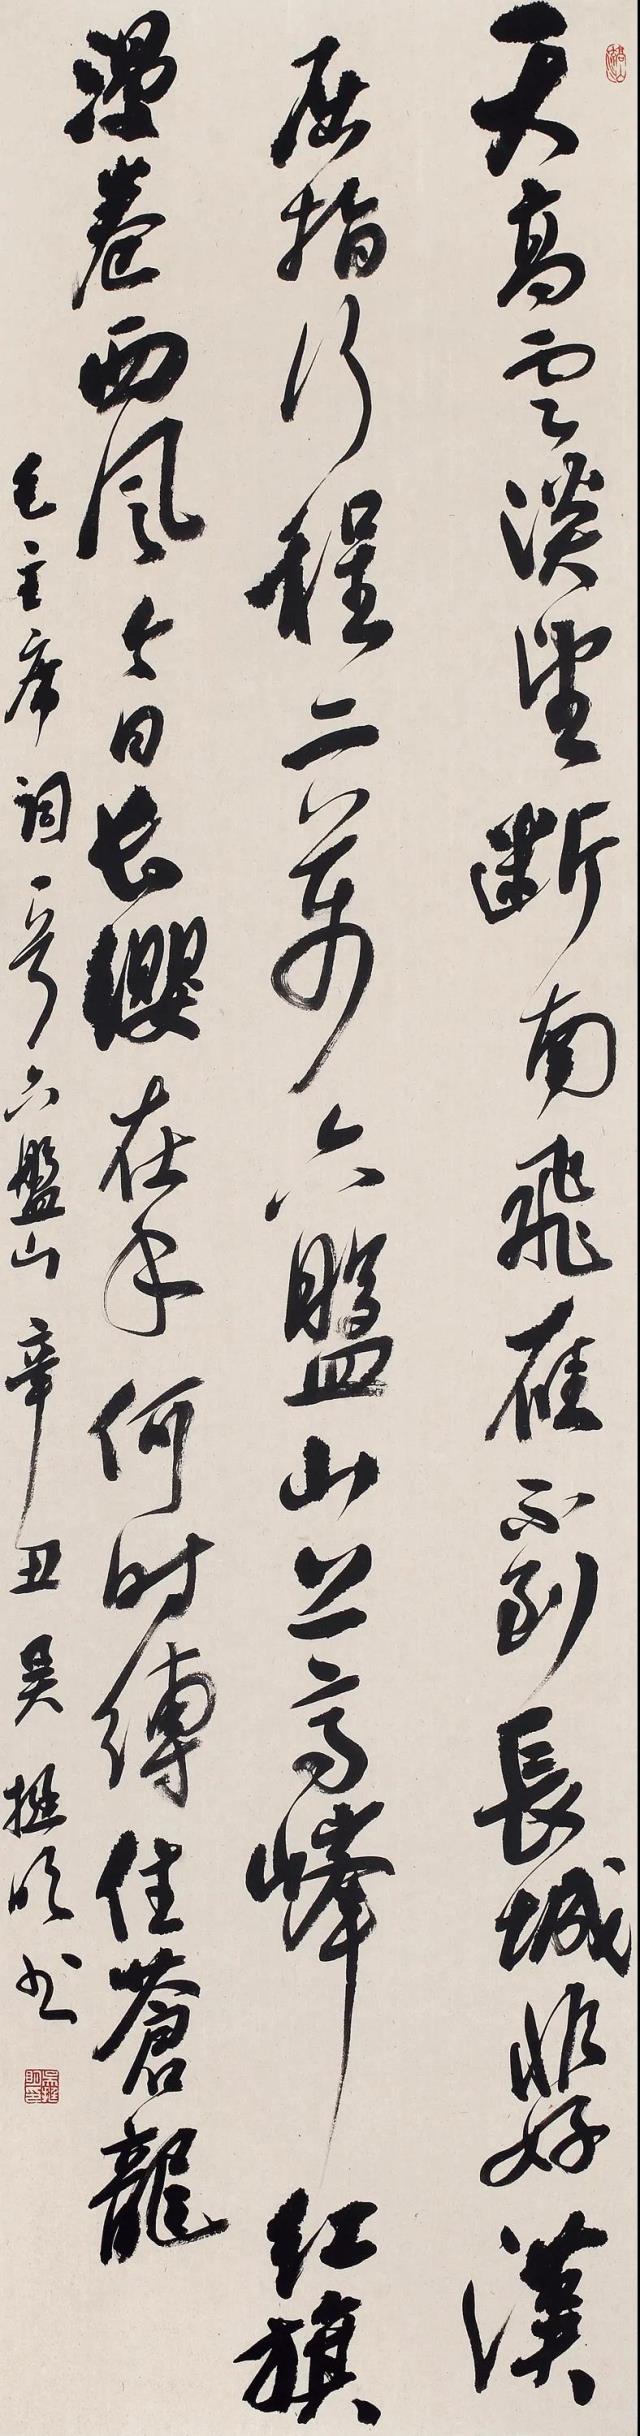 天高雲淡望斷南飛雁不到長城非好漢
屈指行程二萬六盤山上高峰红旗
漫卷西风今日长纓在手何时縛住蒼龍
毛主席词一首六盤山辛丑吴挺明书